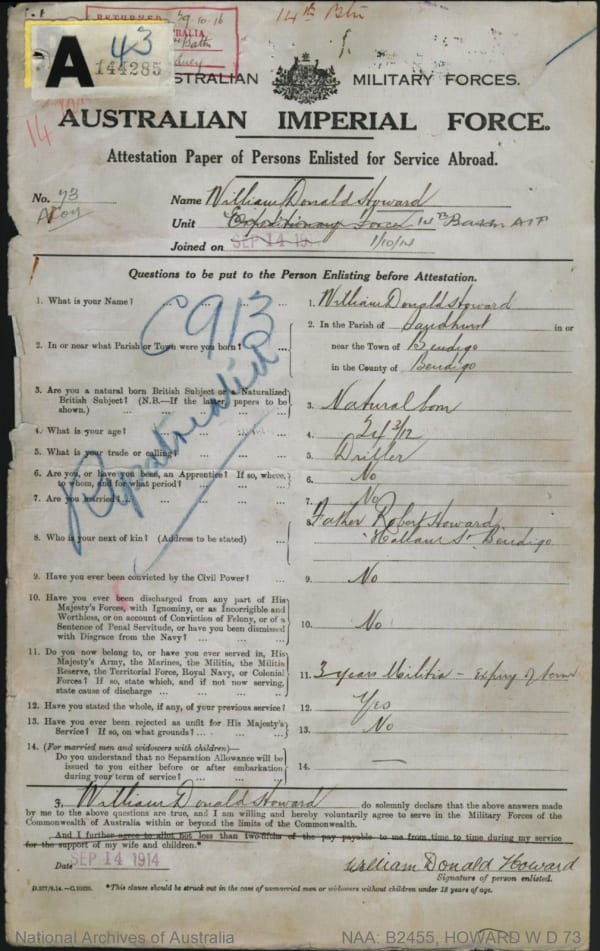 RETURNED 29.10.16
14th Btn
A
43
144285
AUSTRALIAN MILITARY FORCES.
AUSTRALIAN IMPERIAL FORCE.
Attestation Paper of Persons Enlisted for Service Abroad.
No. 73 Name William Donald Howard
Unit Expeditionary Force 14th Battn AIF
Joined on SEP 14 19 1/10/14
Questions to be put to the Person Enlisting before Attestation.
1. What is your Name? 1. William Donald Howard
2. In or near what Parish or Town were you born? 2. In the Parish of Sandhurst in or
near the Town of Bendigo
in the County of Bendigo
3. Are you a natural born British Subject or a Naturalized
British Subject? (N.B.—If the latter, papers to be
shown.) 3. Natural born
4. What is your age? 4. 24 3/12
5. What is your trade or calling? 5. Driller
6. Are you, or have you been, an Apprentice? If so, where,
to whom, and for what period? 6. No
7. Are you married? 7. No
8. Who is your next of kin? (Address to be stated) 8. Father Robert Howard
Hallam St Bendigo
9. Have you ever been convicted by the Civil Power? 9. No
10. Have you ever been discharged from any part of His
Majesty's Forces, with Ignominy, or as Incorrigible and
Worthless, or on account of Conviction of Felony, or of a
Sentence of Penal Servitude, or have you been dismissed
with Disgrace from the Navy? 10. No
11. Do you now belong to, or have you ever served in, His
Majesty's Army, the Marines, the Militia, the Militia
Reserve, the Territorial Force, Royal Navy, or Colonial
Forces? If so, state which, and if not now serving,
state cause of discharge 11. 3 years Militia - Expiry of term
12. Have you stated the whole, if any, of your previous service? 12. Yes
13. Have you ever been rejected as unfit for His Majesty's
Service? If so, on what grounds? 13. No
14. (For married men and widowers with children)—
Do you understand that no Separation Allowance will be
issued to you either before or after embarkation
during your term of service? 14. —
C 913
Repatriated
I, William Donald Howard do solemnly declare that the above answers made
by me to the above questions are true, and I am willing and hereby voluntarily agree to serve in the Military Forces of the
Commonwealth of Australia within or beyond the limits of the Commonwealth.
And I further agree to allot not less than two-fifths of the pay payable to me from time to time during my service
for the support of my wife and children.*
Date SEP 14 1914 William Donald Howard
Signature of person enlisted.
*This clause should be struck out in the case of unmarried men or widowers without children under 18 years of age.
National Archives of Australia NAA: B2455, HOWARD W D 73